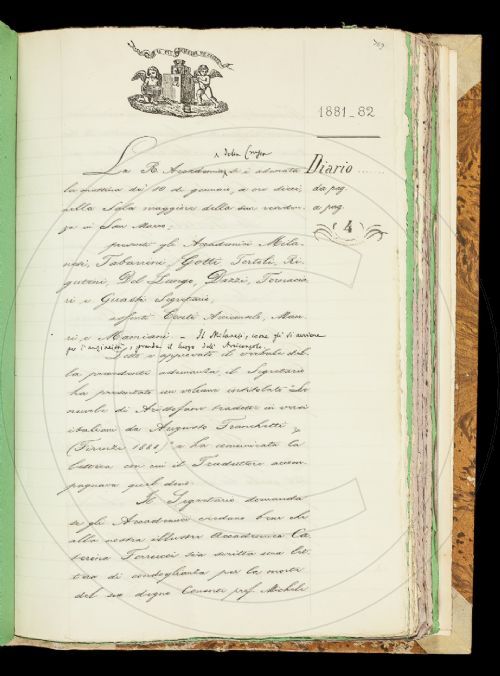 IL PIÙ BEL FIOR NE COGLIE
1881_82
Diario
da pag.
a pag.
4
della Crusca
La R. Accademia si è adunata
la mattina del 10 di gennaio, a ore dieci,
nella Sala maggiore della sua residen-
za in San Marco;
presenti gli Accademici Mila-
nesi, Tabarrini, Gotti, Tortoli, Ri-
gutini, Del Lungo, Dazzi, Fornacia
ri e Guasti Segretario;
assenti Conti Arciconsolo, Mau-
ri e Mamiani. – Il Milanesi, come più
per l'anzianità, prende il luogo dell'Arciconsolo.
Letto e approvato il verbale del-
la precedente adunanza, il Segretario
ha presentato un volume intitolato "Le
nuvole di Aristofane tradotte in versi
italiani da Augusto Franchetti
(Firenze 1881)" e ha comunicata la
lettera con cui il Traduttore accom-
pagnava quel dono.
Il Segretario domanda
se gli Accademici credano bene che
alla nostra illustre Accademica Ca-
terina Ferrucci sia scritta una let-
tera di condoglianza per la morte
del suo degno Consorte prof. Michele